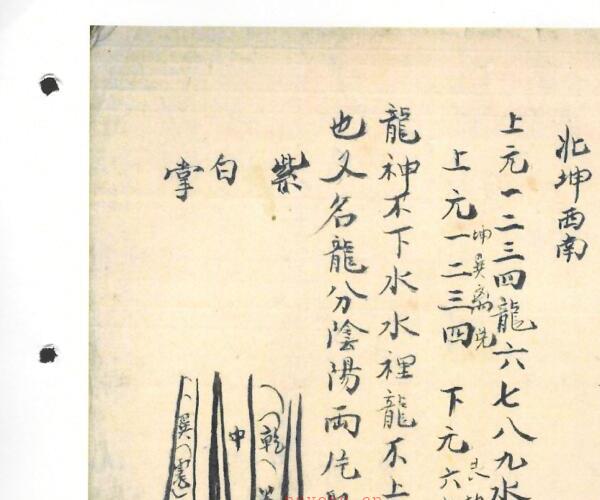 北坤西南
上元一二三四龍六七八九水
上元一二三四 下元六
坤巽離兌
龍神不下水水裡龍不上
也又名龍分陰陽兩片
紫
白
掌
乾
中
巽 震